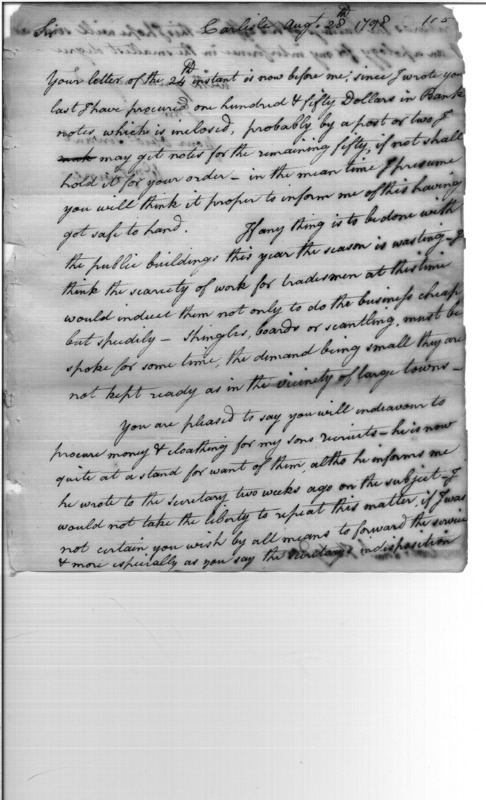 Sir Carlisle Augt. 28th 1798 115
Your letter of the 24th instant is now before me, since I wrote you
last I have procured one hundred & fifty Dollars in Bank
notes which is inclosed, probably by a post or two I
may get notes for the remaining fifty, if not shall
hold it for your order – in the mean time I presume
you will think it proper to inform me of this having
got safe to hand. If any thing is to be done with
the public buildings this year the season is wasting – I
think the scarcity of work for tradesmen at this time
would induce them not only to do the business cheap
but speedily – Shingles, boards or scantling, must be
spoke for some time, the demand being small they are
not kept ready as in the vicinety of large towns –
You are pleased to say you will endeavour to
procure money & cloathing for my sons recruits – he is now
quite at a stand for want of them, altho he informs me
he wrote to the secretary two weeks ago on the subject – I
would not take the liberty to repeat this matter, if I was
not certain you wish by all means to forward the service
& more especially as you say the Secretarys indisposition